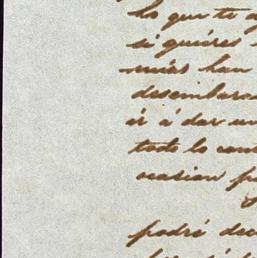 lo que te a
si quieres
más han
desembarca
ir á dar un
todo lo con
ocasion p
podré dec